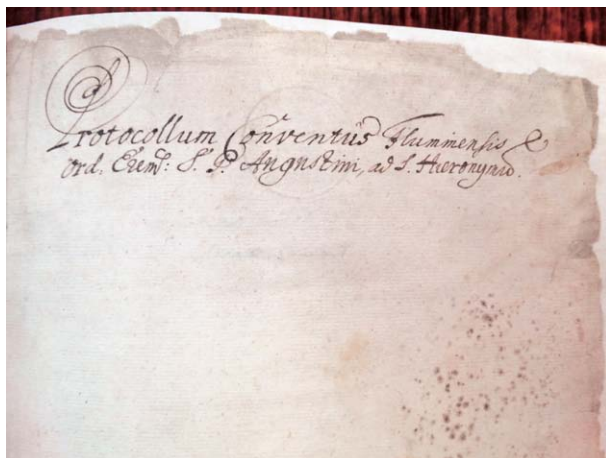 Protocollum Conventus Fluminensis
Ord. Erem: S. P. Augustini, ad S. Hieronymũ.